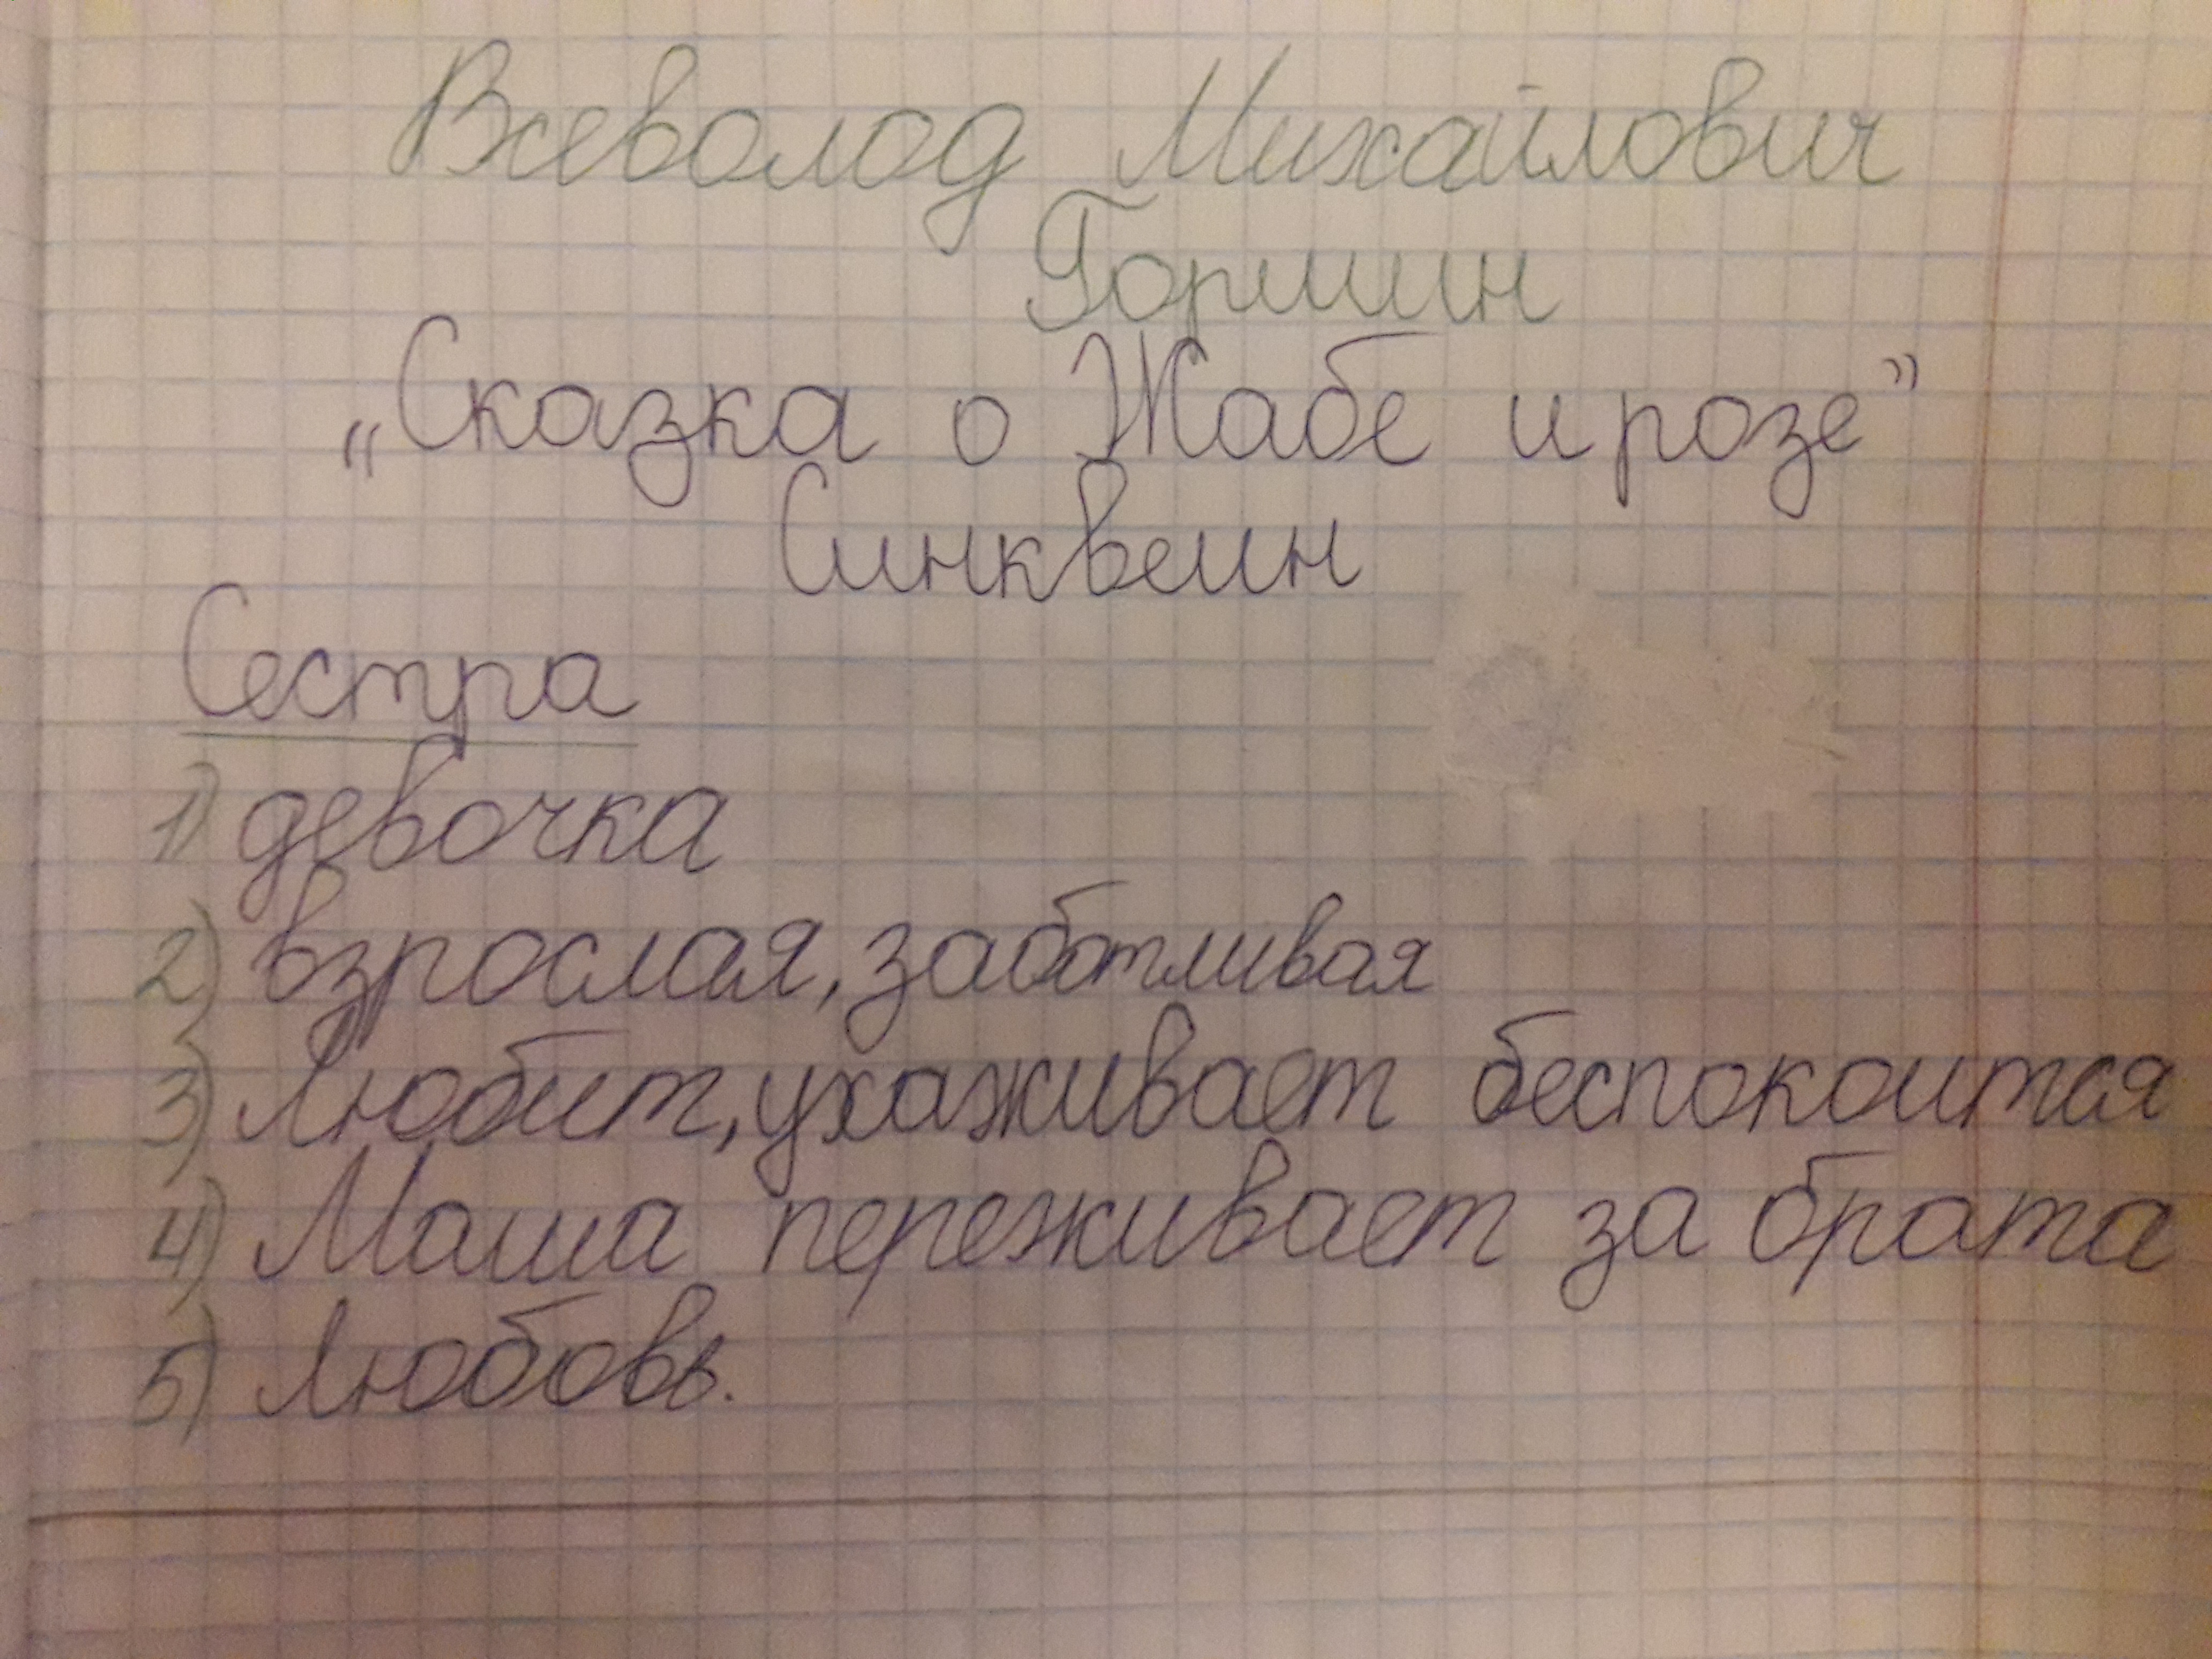 Всеволод Михайлович
Горшин
„Сказка о Жабе и розе”
Синквеин
Сестра
1) девочка
2) взрослая, заботливая
3) Любит, ухаживает беспокоится
4) Маша переживает за брата
5) Любовь.